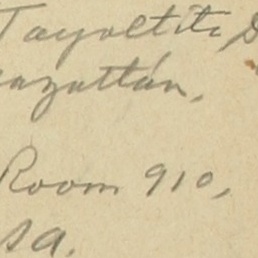 Tayoltita S
azatlán.
Room 910,
sa.